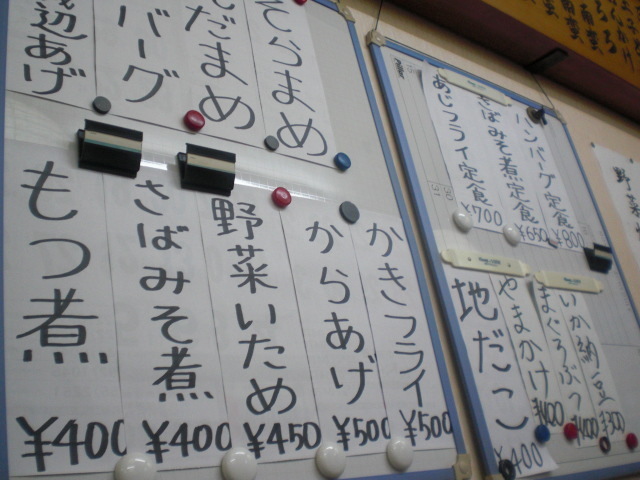 そらまめ
だまめ
バーグ
あげ
かきフライ
¥500
からあげ
¥500
野菜いため
¥450
さばみそ煮
¥400
もつ煮
¥400
ハンバーグ定食
¥800
さばみそ煮定食
¥650
あじフライ定食
¥700
いか納豆
¥300
まぐろぶつ
¥400
やまかけ
¥400
地だこ
¥400
野菜